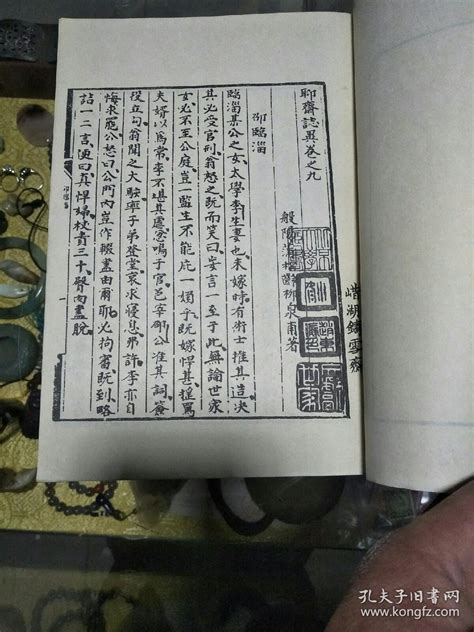 湖鑄雪齋
聊齋誌異卷之九
般陽蒲松齡柳泉甫著
邵臨淄
臨淄某公之女太學李生妻也未嫁時有術士推其造决
其必受官刑翁怒之既而笑曰妄言一至于此無論世家
女必不至公庭豈一監生不能庇一婦乎既嫁悍甚捶罵
夫婿以為常李不堪其虐忿鳴于官邑宰邵公准其詞簽
役立勾翁聞之大駭率子弟登堂哀求寢息弗許李亦自
悔求罷公怒曰公門內豈作輟盡由爾耶必拘審既到略
詰一二言便曰真悍婦杖責三十臀肉盡脫
邵臨淄
孔夫子旧書网
www.kongfz.com